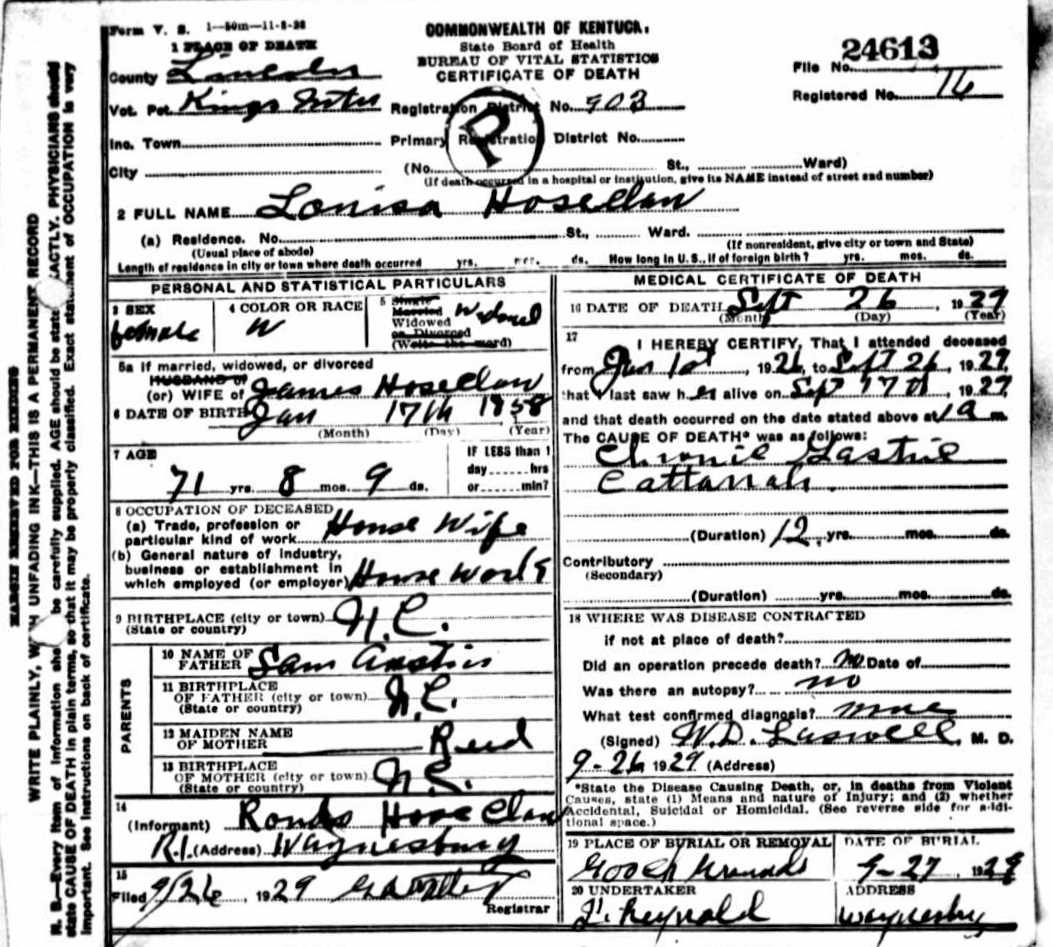 Form V. S. 1-50m-11-8-28
COMMONWEALTH OF KENTUCKY
State Board of Health
BUREAU OF VITAL STATISTICS
CERTIFICATE OF DEATH
File No. 24613
Registered No. 16
1 PLACE OF DEATH
County Lincoln
Vot. Pct. Kings Mtn
Registration District No. 903
Inc. Town
Primary Registration District No.
P
City
(No. St., Ward)
(If death occurred in a hospital or institution, give its NAME instead of street and number)
2 FULL NAME Louisa Hoseclaw
(a) Residence. No. St., Ward.
(Usual place of abode) (If nonresident, give city or town and State)
Length of residence in city or town where death occurred yrs. mos. ds. How long in U. S., if of foreign birth? yrs. mos. ds.
PERSONAL AND STATISTICAL PARTICULARS
3 SEX female
4 COLOR OR RACE W
5 Single
Married
Widowed
or Divorced
(Write the word)
Widowed
5a If married, widowed, or divorced
HUSBAND of
(or) WIFE of James Hoseclaw
6 DATE OF BIRTH Jan 17th 1858
(Month) (Day) (Year)
7 AGE
71 yrs. 8 mos. 9 ds.
IF LESS than 1
day hrs
or min?
8 OCCUPATION OF DECEASED
(a) Trade, profession or
particular kind of work House Wife
(b) General nature of industry,
business or establishment in
which employed (or employer) House Work
9 BIRTHPLACE (city or town)
(State or country) N.C.
PARENTS
10 NAME OF
FATHER Sam Austin
11 BIRTHPLACE
OF FATHER (city or town)
(State or country) N.C.
12 MAIDEN NAME
OF MOTHER Reed
13 BIRTHPLACE
OF MOTHER (city or town)
(State or country) N.C.
14
(Informant) Hose Claw
R.1. (Address) Waynesburg
15
Filed 9/26, 1929
Registrar
MEDICAL CERTIFICATE OF DEATH
16 DATE OF DEATH Sept 26, 1929
(Month) (Day) (Year)
17 I HEREBY CERTIFY, That I attended deceased
from Jan 1st, 1926, to Sept 26, 1929,
that I last saw her alive on Sept 17th, 1929,
and that death occurred on the date stated above at m.
The CAUSE OF DEATH* was as follows:
Chronic Gastric
Cattarrah
(Duration) 12 yrs. mos. ds.
Contributory
(Secondary)
(Duration) yrs. mos. ds.
18 WHERE WAS DISEASE CONTRACTED
if not at place of death?
Did an operation precede death? no Date of
Was there an autopsy? no
What test confirmed diagnosis?
(Signed) W.D. Laswell, M. D.
9-26 1929 (Address)
*State the Disease Causing Death, or, in deaths from Violent
Causes, state (1) Means and nature of Injury; and (2) whether
Accidental, Suicidal or Homicidal. (See reverse side for additional space.)
19 PLACE OF BURIAL OR REMOVAL
Gooch
DATE OF BURIAL
9-27 1929
20 UNDERTAKER
Reynold
ADDRESS
Waynesbg
MARGIN RESERVED FOR BINDING
WRITE PLAINLY, WITH UNFADING INK—THIS IS A PERMANENT RECORD
N. B.—Every item of information should be carefully supplied. AGE should be stated EXACTLY. PHYSICIANS should
state CAUSE OF DEATH in plain terms, so that it may be properly classified. Exact statement of OCCUPATION is very
important. See instructions on back of certificate.